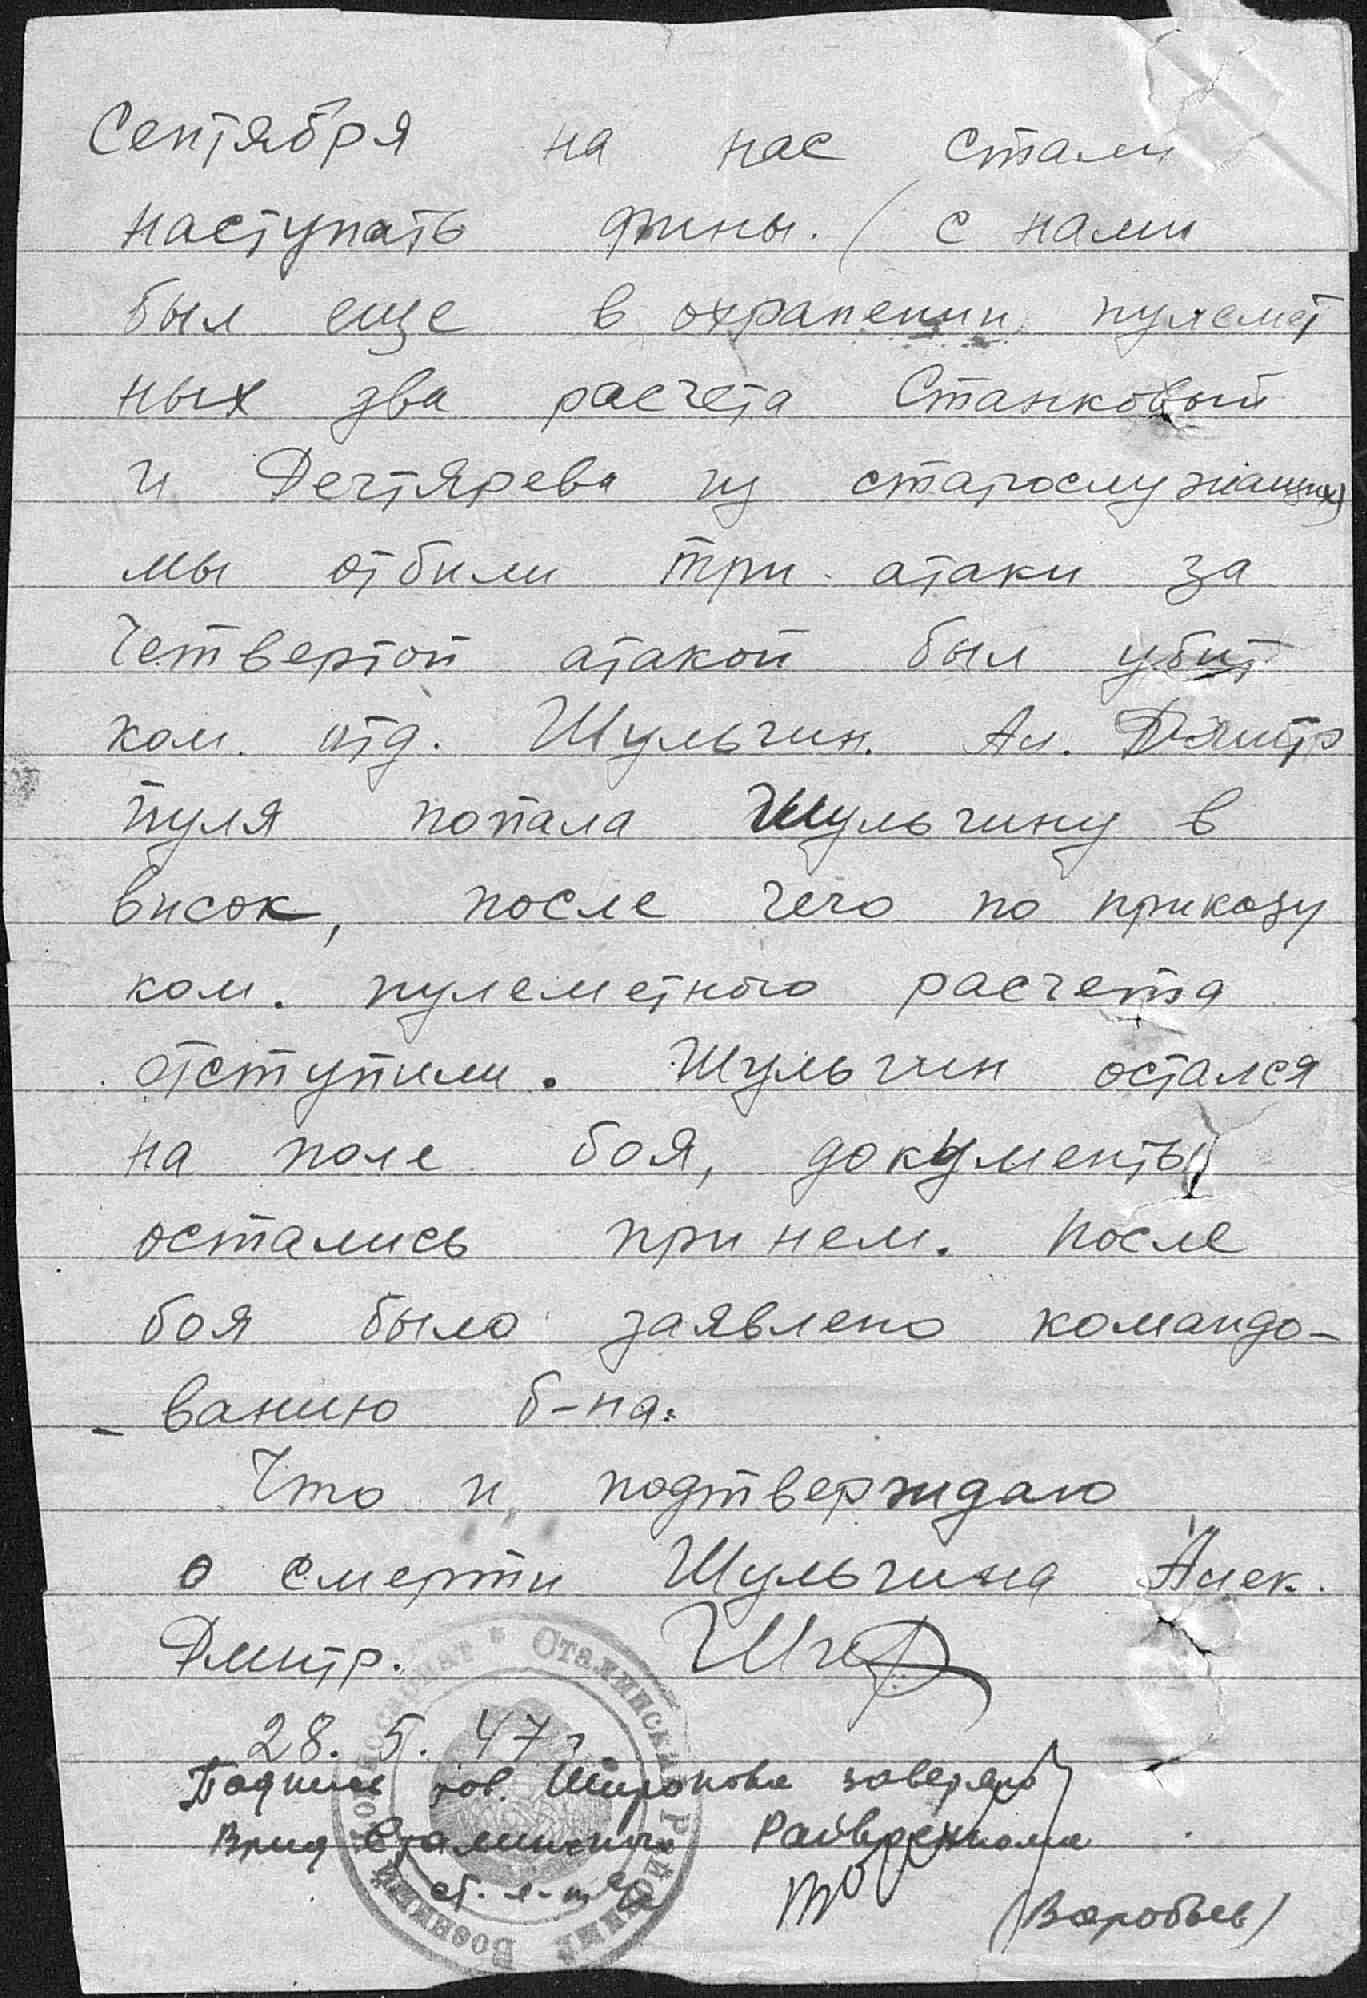 Сентября на нас стали
наступать фины. (с нами
был еще в охранении пулемет
ных два расчета Станковый
и Дегтярева из старослужащих)
мы отбили три атаки за
Четвертой атакой был убит
ком. отд. Шульгин. Ал. Дмитр
пуля попала Шульгину в
висок, после чего по приказу
ком. пулеметного расчета
отступили. Шульгин остался
на поле боя, документы
остались при нем. После
боя было заявлено командо-
-ванию б-на.
Что и подтверждаю
о смерти Шульгина Алек.
Дмитр.
28. 5. 47 г
Подпись тов. Широкова заверяю
Врид Сталинского Райвоенкома
ст. л-т
(Воробьев)
Военный Комиссариат * Сталинский Районный